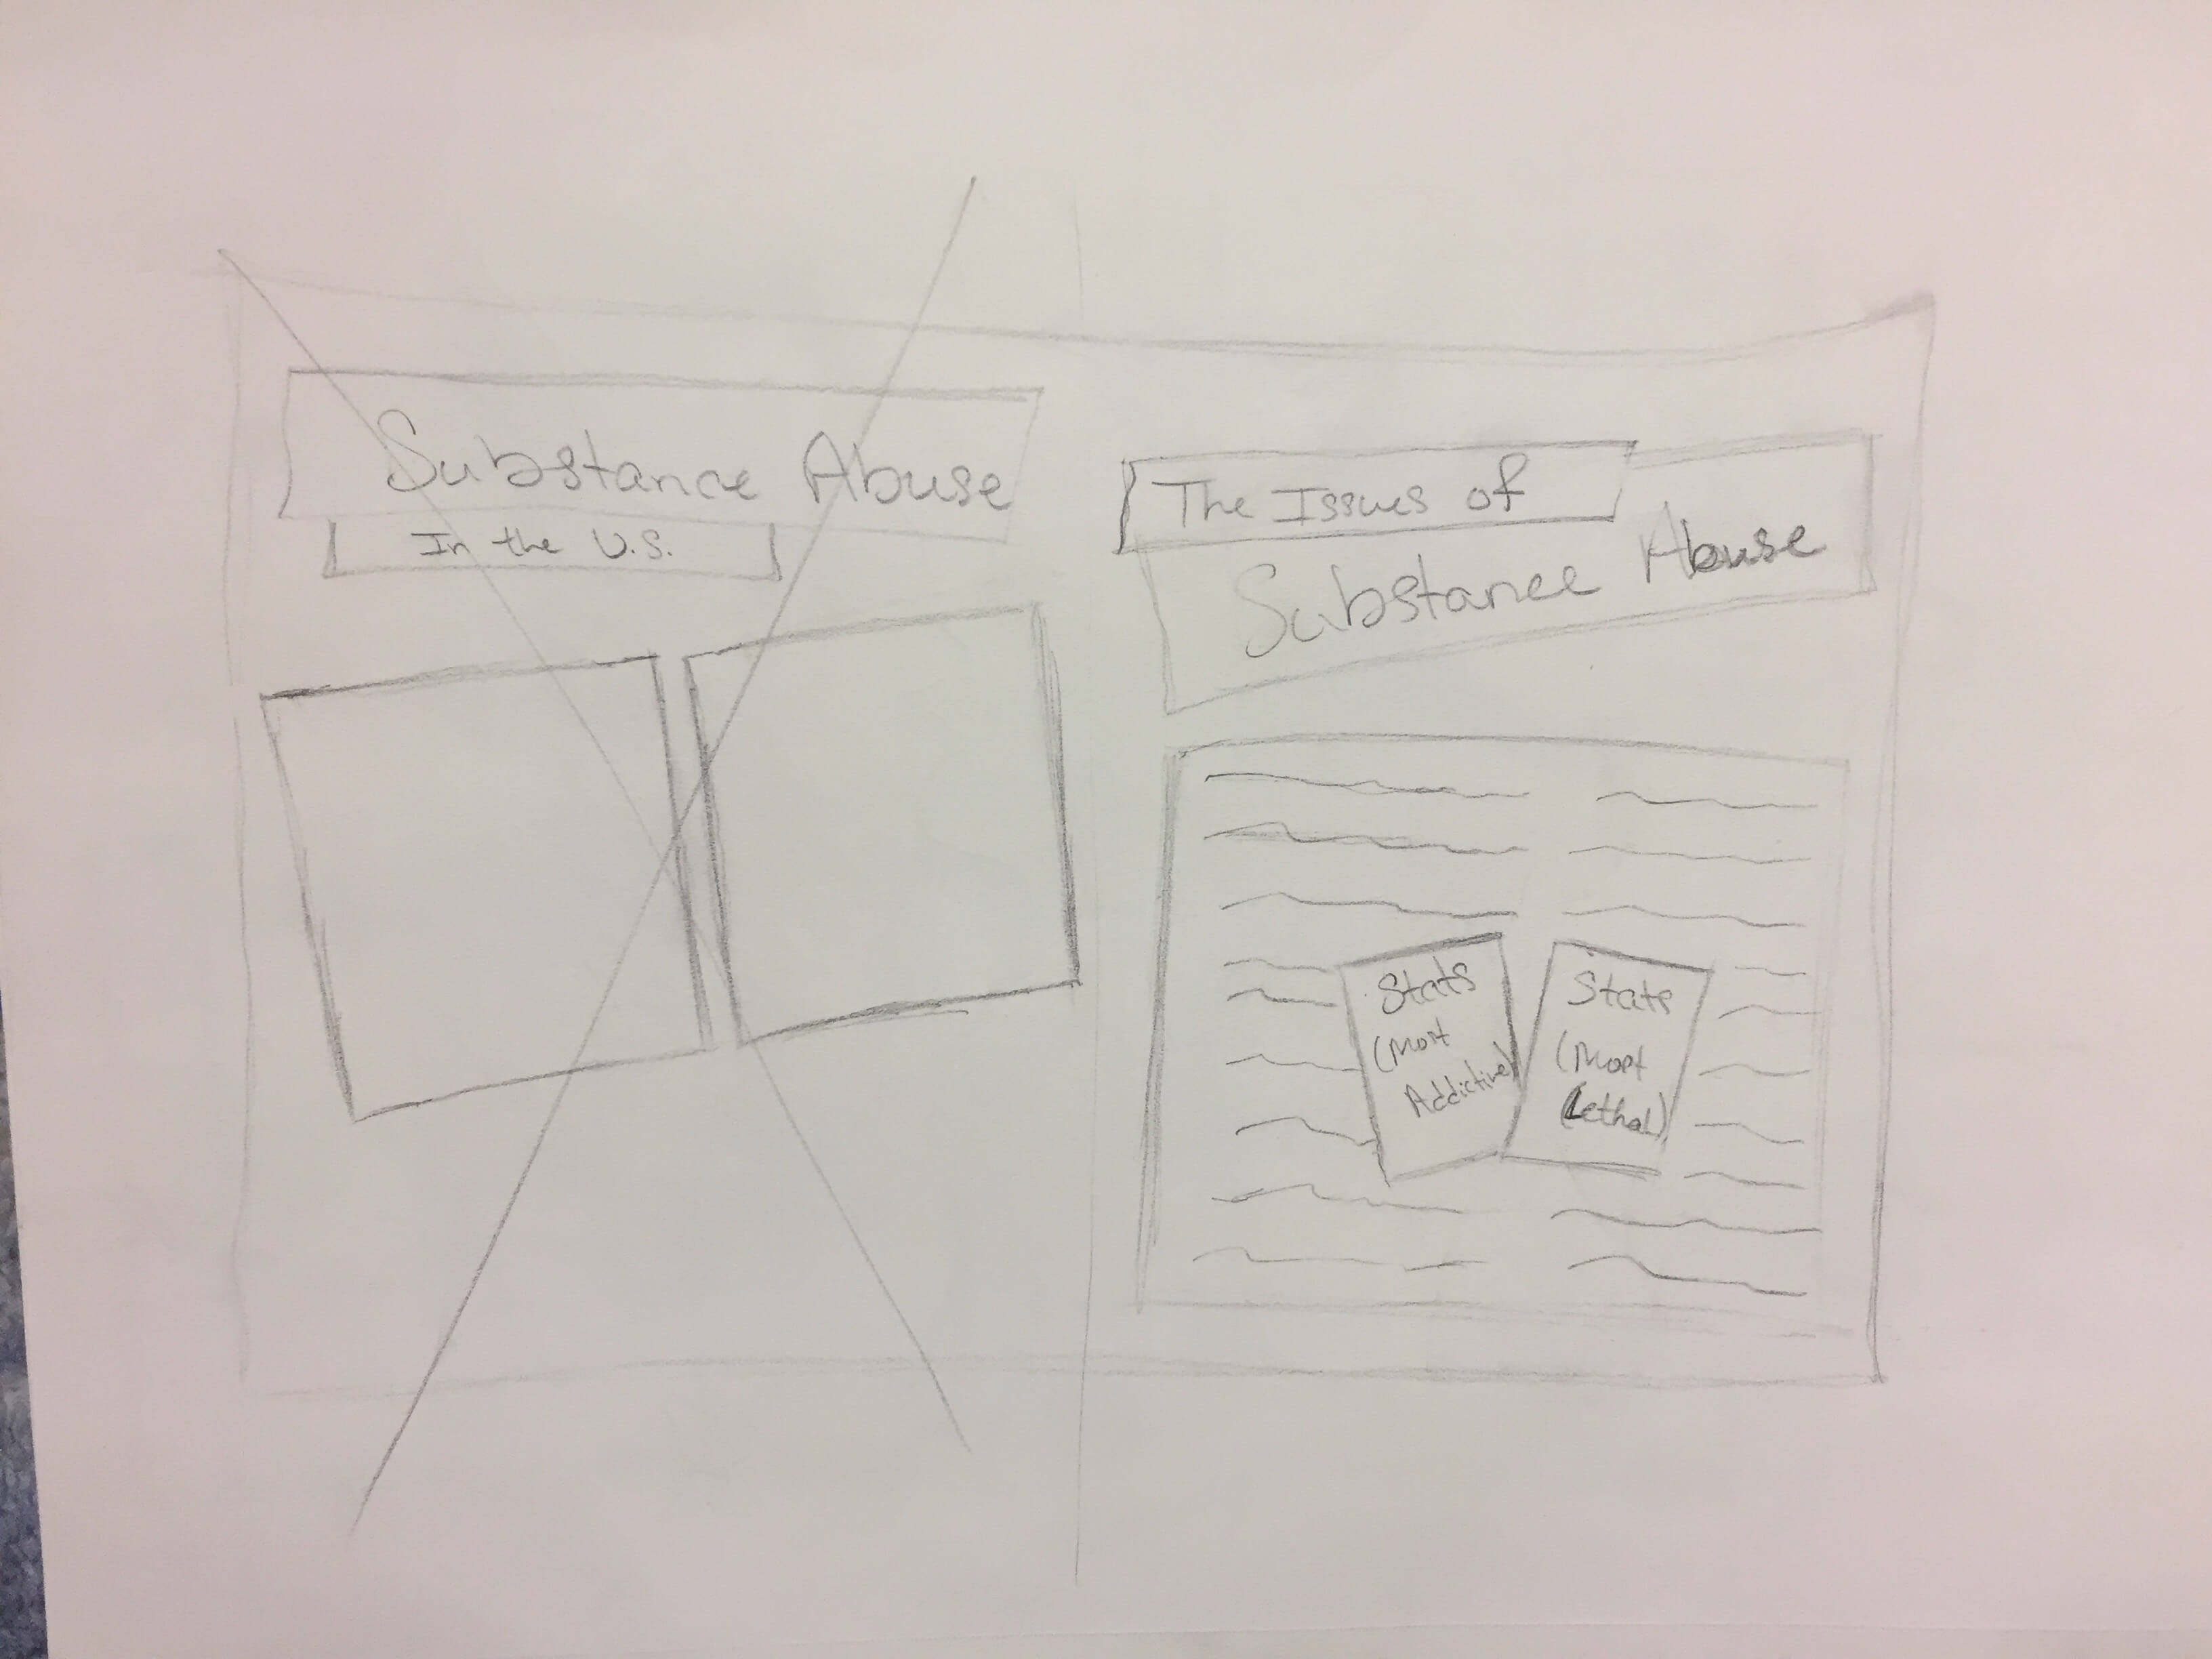 Substance Abuse
In the U.S.
The Issues of
Substance Abuse
Stats
(Most
Addictive)
Stats
(Most
(Lethal)